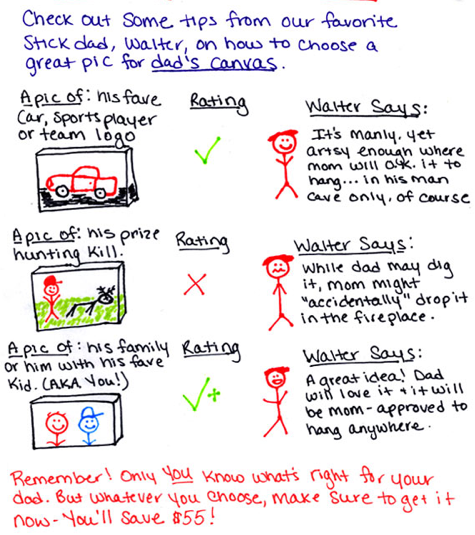 Check out some tips from our favorite
Stick dad, Walter, on how to choose a
great pic for dad's canvas.
A pic of: his fave
Car, Sports player
or team logo
Rating
Walter Says:
It's manly, yet
artsy enough where
mom will o.k. it to
hang... in his man
cave only, of course
A pic of: his prize
hunting kill.
Rating
Walter Says:
While dad may dig
it, mom might
"accidentally" drop it
in the fireplace.
A pic of: his family
or him with his fave
Kid. (A.K.A. You!)
Rating
Walter Says:
A great idea! Dad
will love it + it will
be mom-approved to
hang anywhere.
Remember! Only you know what's right for your
dad. But whatever you choose, make sure to get it
now - You'll save $55!